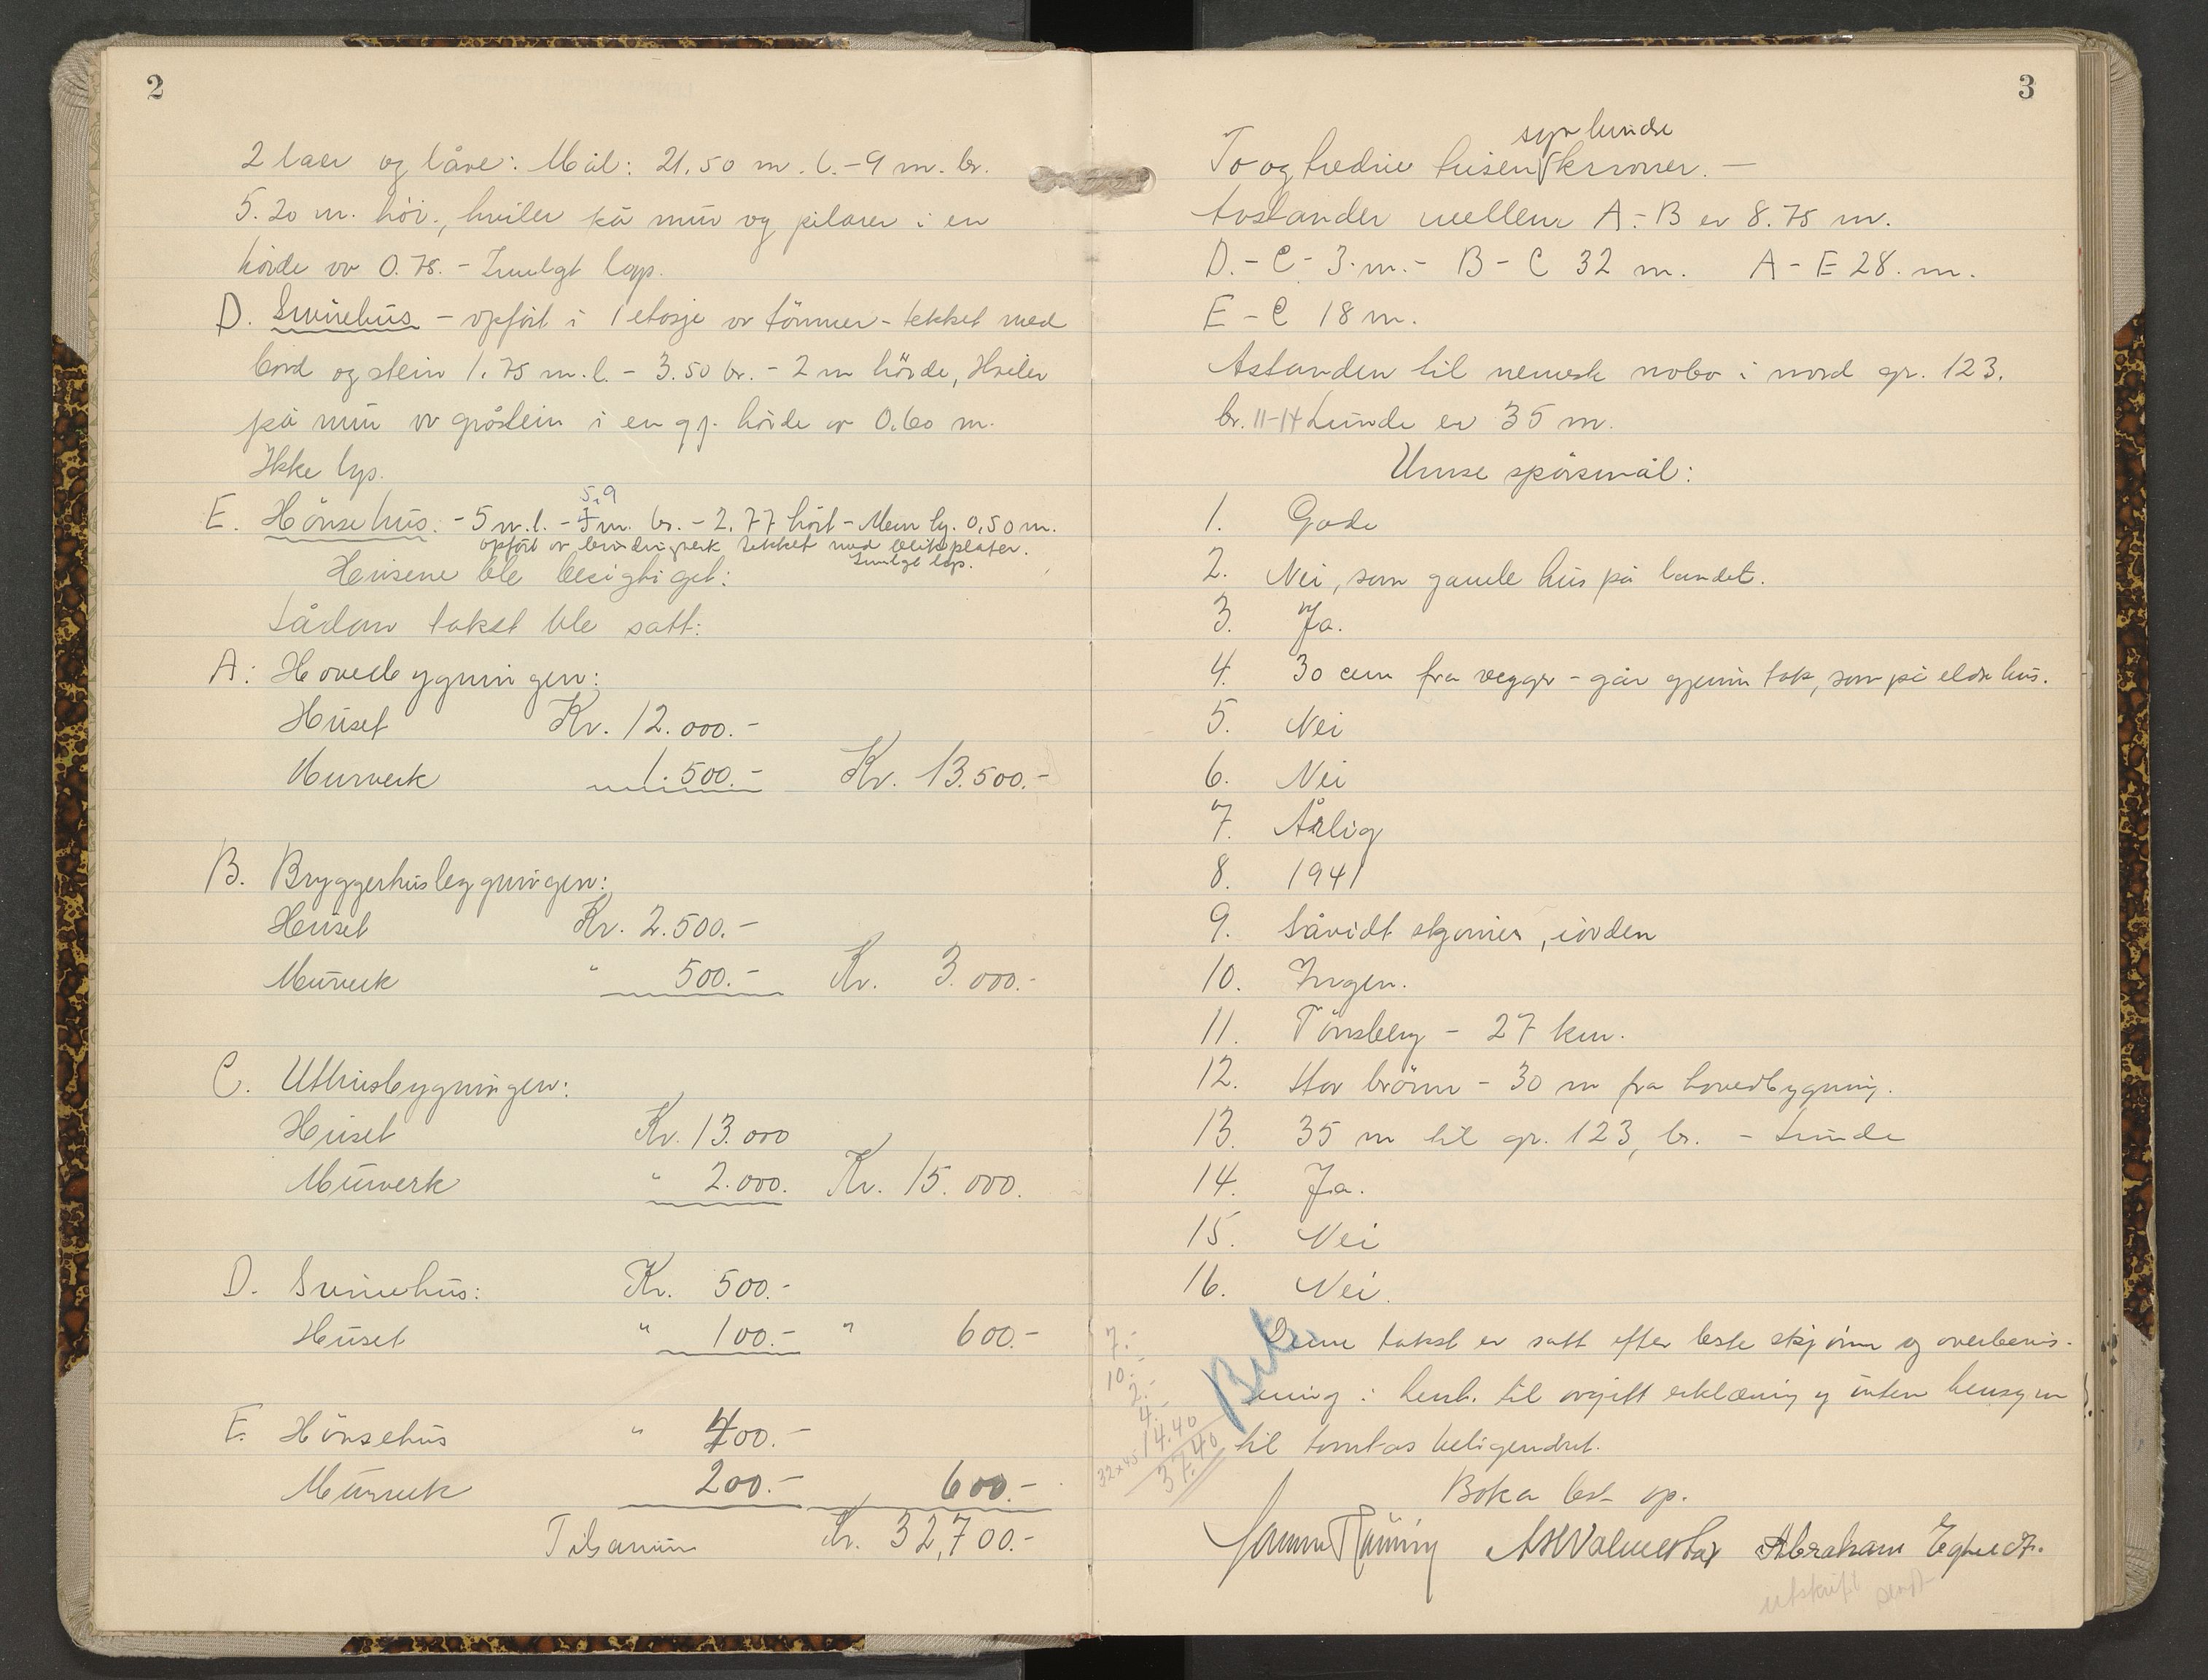 2
2 laer og låve: Mål: 21.50 m. l. - 9 m. br.
5.20 m. höi., hviler på mur og pilarer i en
höide av 0.75. - Innlagt lys.
D. Svinehus - opfört i 1 etasje av tömmer - tekket med
bord og stein 1.75 m. l. - 3.50 br. - 2 m höide, Hviler
på mur av gråstein i en gj. höide av 0.60 m.
Ikke lys.
5.9
E. Hönsehus. - 5 m. l. - 4 m. br. - 2.77 höit - Mur hg. 0,50 m.
opfört av bindingverk tekket med blikkplater.
Innlagt lys.
Husene ble besigtiget:
Sådan takst ble satt:
A: Hovedbygningen:
Huset Kr. 12.000.-
Murverk 1.500.- Kr. 13.500.-
B. Bryggerhusbygningen:
Huset Kr. 2.500.-
Murverk " 500.- Kr. 3.000.-
C. Uthusbygningen:
Huset Kr. 13.000
Murverk " 2.000. Kr. 15.000.
D. Svinehus: Kr. 500.-
Huset " 100.- " 600.-
E. Hönsehus " 400.-
Murverk 200.- 600.-
Tilsammen Kr. 32,700.-
3
syv hundre
To og tredive tusen kroner. -
Avstanden mellem A.-B er 8.75 m.
D.-C - 3.m.- B - C 32 m. A - E 28. m.
E - C 18 m.
Astanden til nemeste nabo i nord gr. 123.
br. 11-14 Lunde er 35 m.
Umse spörsmål:
1. Gode
2. Nei, som gamle hus på landet.
3. Ja.
4. 30 cm fra vegger - går gjennom tak, som på eldre hus.
5. Nei
6. Nei
7. Årlig
8. 1941
9. Såvidt skjönnes, iorden
10. Ingen.
11. Tönsberg - 27 km.
12. Stor brönn - 30 m fra hovedbygning.
13. 35 m til gr. 123, br. - Lunde
14. Ja.
15. Nei
16. Nei.
7.-
10.-
2.-
4.-
32x45 14.40
37.40
Denne takst er satt efter beste skjönn og overbevis-
ning i henh. til avgitt erklæring og uten hensyn
til tomtas beligenhet.
Boka lest op.
Abraham
utskrift sendt